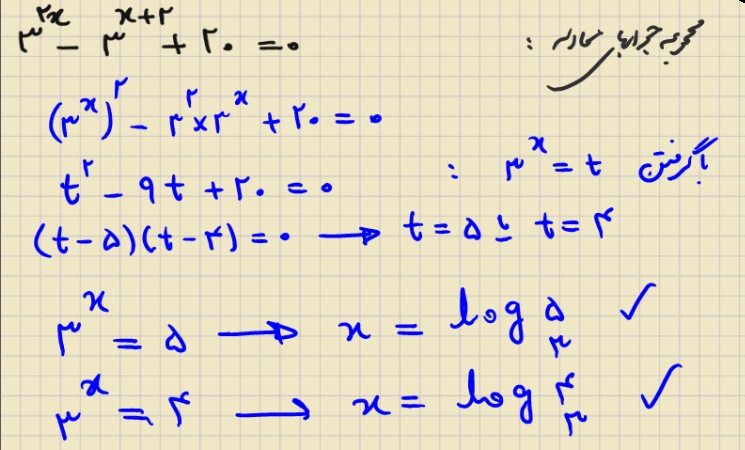 مجموعه جوابهای معادله :
۳^{۲x} - ۳^{x+۲} + ۲۰ = ۰
(۳^x)^۲ - ۳^۲ × ۳^x + ۲۰ = ۰
باگرفتن ۳^x = t :
t^۲ - ۹t + ۲۰ = ۰
(t-۵)(t-۴) = ۰ → t = ۵ یا t = ۴
۳^x = ۵ → x = log_۳ ۵ ✓
۳^x = ۴ → x = log_۳ ۴ ✓